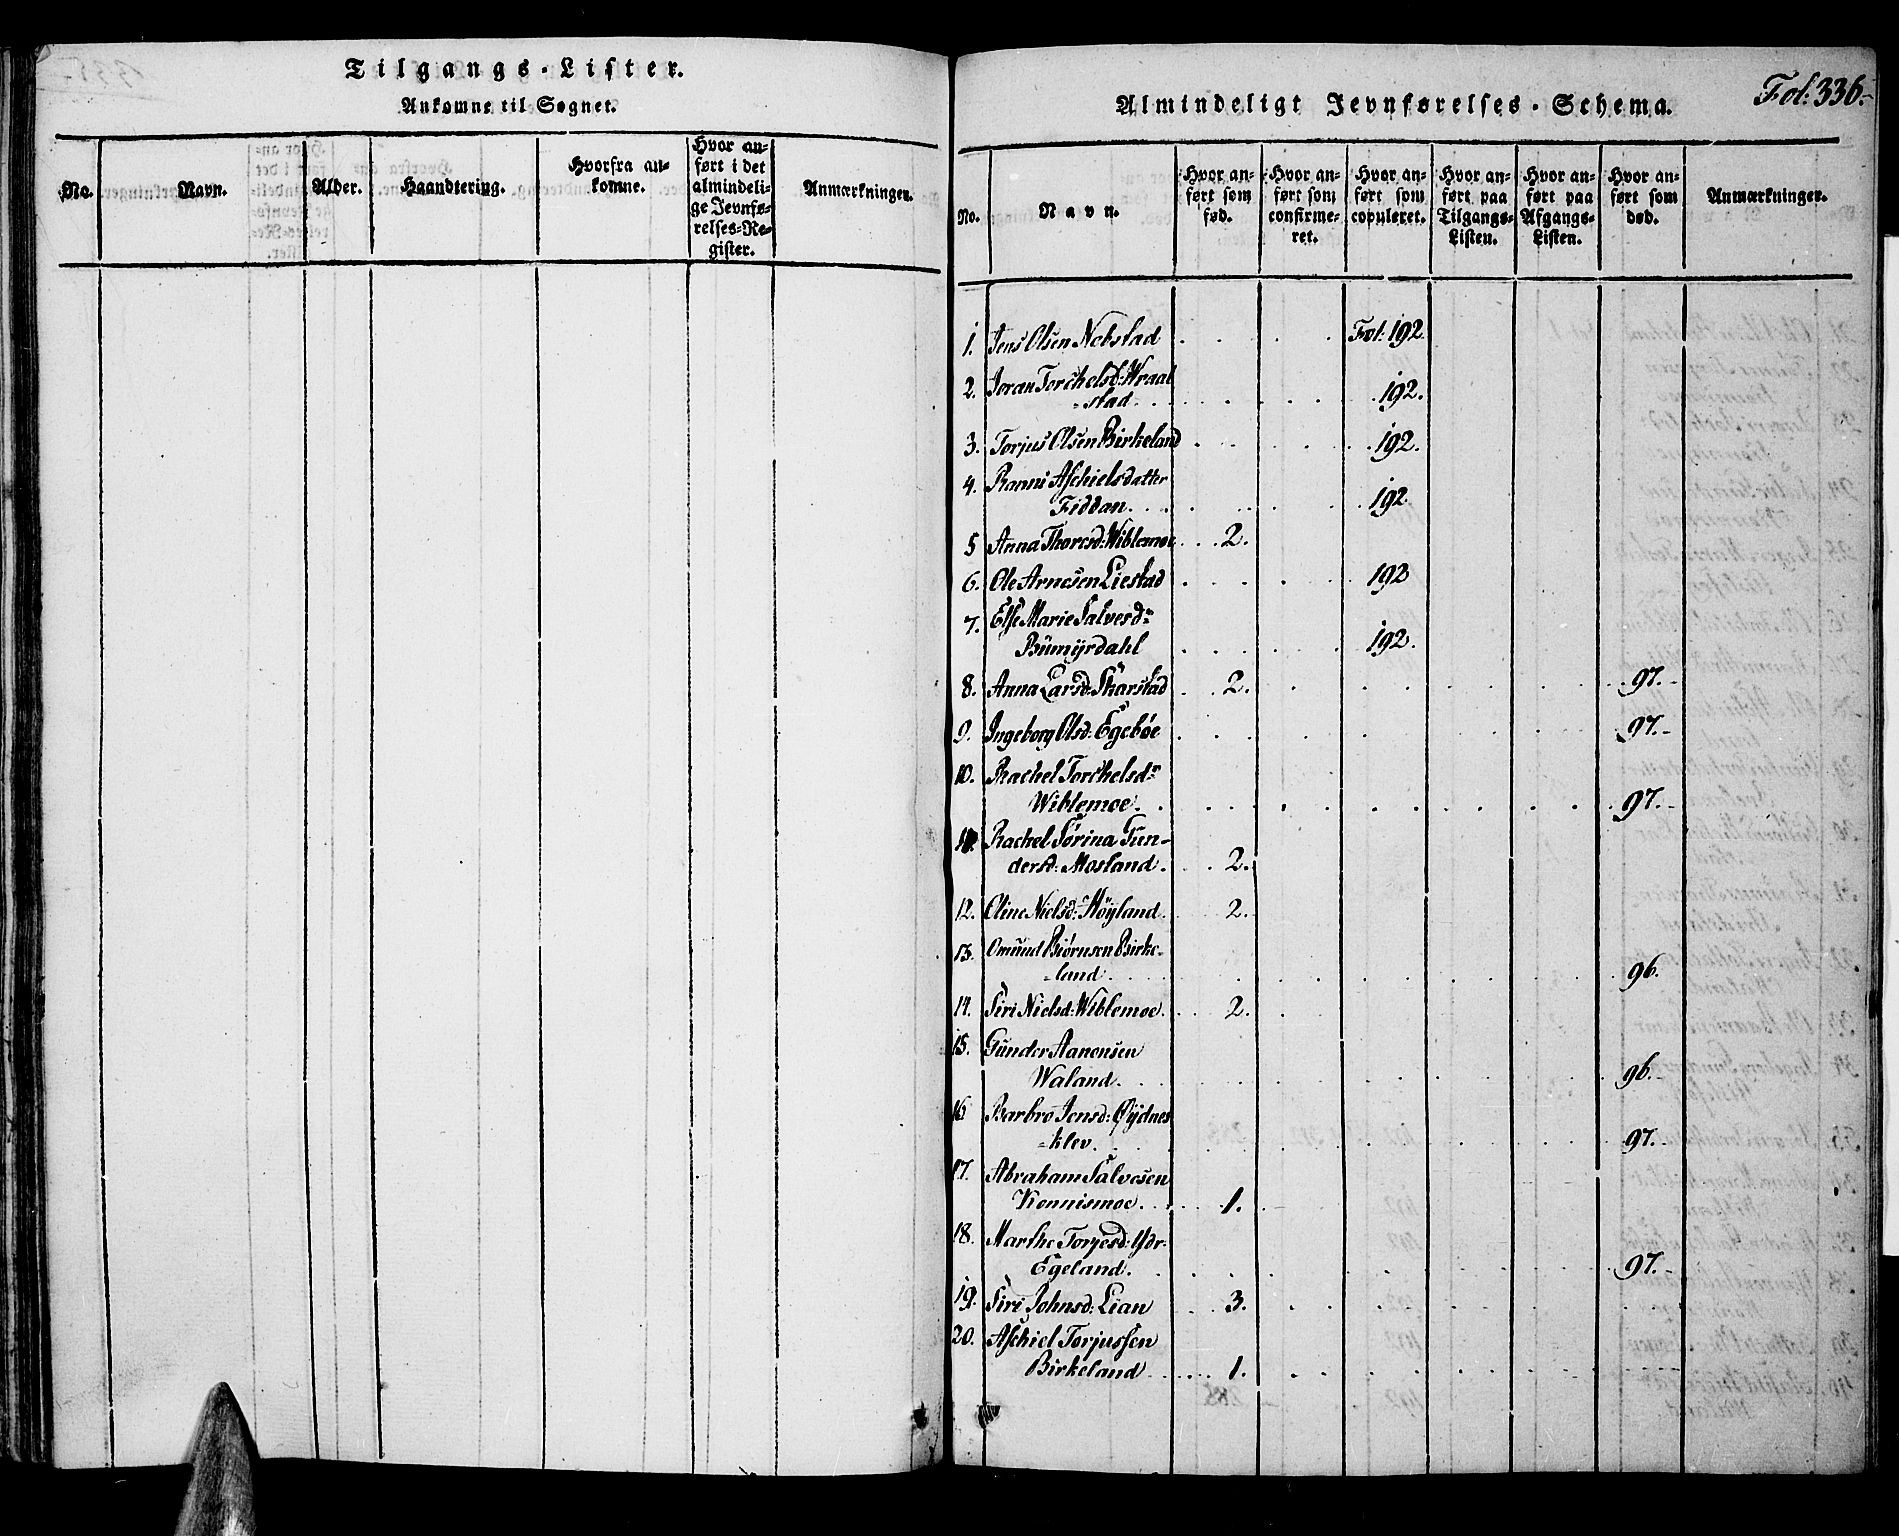 Tilgangs-Lister.
Ankomne til Sognet.
No.
Navn.
Alder.
Haandtering.
Hvorfra an-
komne.
Hvor an-
ført i det
almindeli-
ge Jevnfø-
relses-Re-
gister.
Anmærkninger.
Fol: 336.
Almindeligt Jevnførelses-Schema.
No.
Navn.
Hvor an-
ført som
fød.
Hvor an-
ført som
confirme-
ret.
Hvor an-
ført som
copuleret.
Hvor an-
ført paa
Tilgangs-
Listen.
Hvor an-
ført paa
Afgangs-
Listen.
Hvor an-
ført som
død.
Anmærkninger.
1. Jens Olsen Nebstad Fol: 192
2. Joran Torchelsd: Wraal
-stad 192.
3. Torjus Olsen Birkeland 192.
4. Ranni Aschielsdatter
Fiddan 192.
5 Anna Thoresd: Wiblemoe 2.
6. Ole Arnesen Liestad 192
7. Else Marie Salvesdr
Bümyrdahl 192.
8. Anna Larsd: Skarstad 2. 97.
9. Ingeborg Olsd: Egebøe 97.
10. Rachel Torchelsdr
Wiblemoe 97.
11. Rachel Sørina Gun-
dersd: Mosland 2.
12. Oline Nielsd: Høyland 2.
13. Omund Biørnsen Birke-
-land 96.
14. Siri Nielsd: Wiblemoe 2.
15. Gunder Aanensen
Waland 96.
16 Barbro Jensd: Øydnes
-klev 97.
17. Abraham Salvesen
Konnismoe 1.
18. Marthe Torjesd: Ydr:
Egeland 97.
19. Siri Johnsd: Lian 3.
20. Aschiel Torjussen
Birkeland 1.